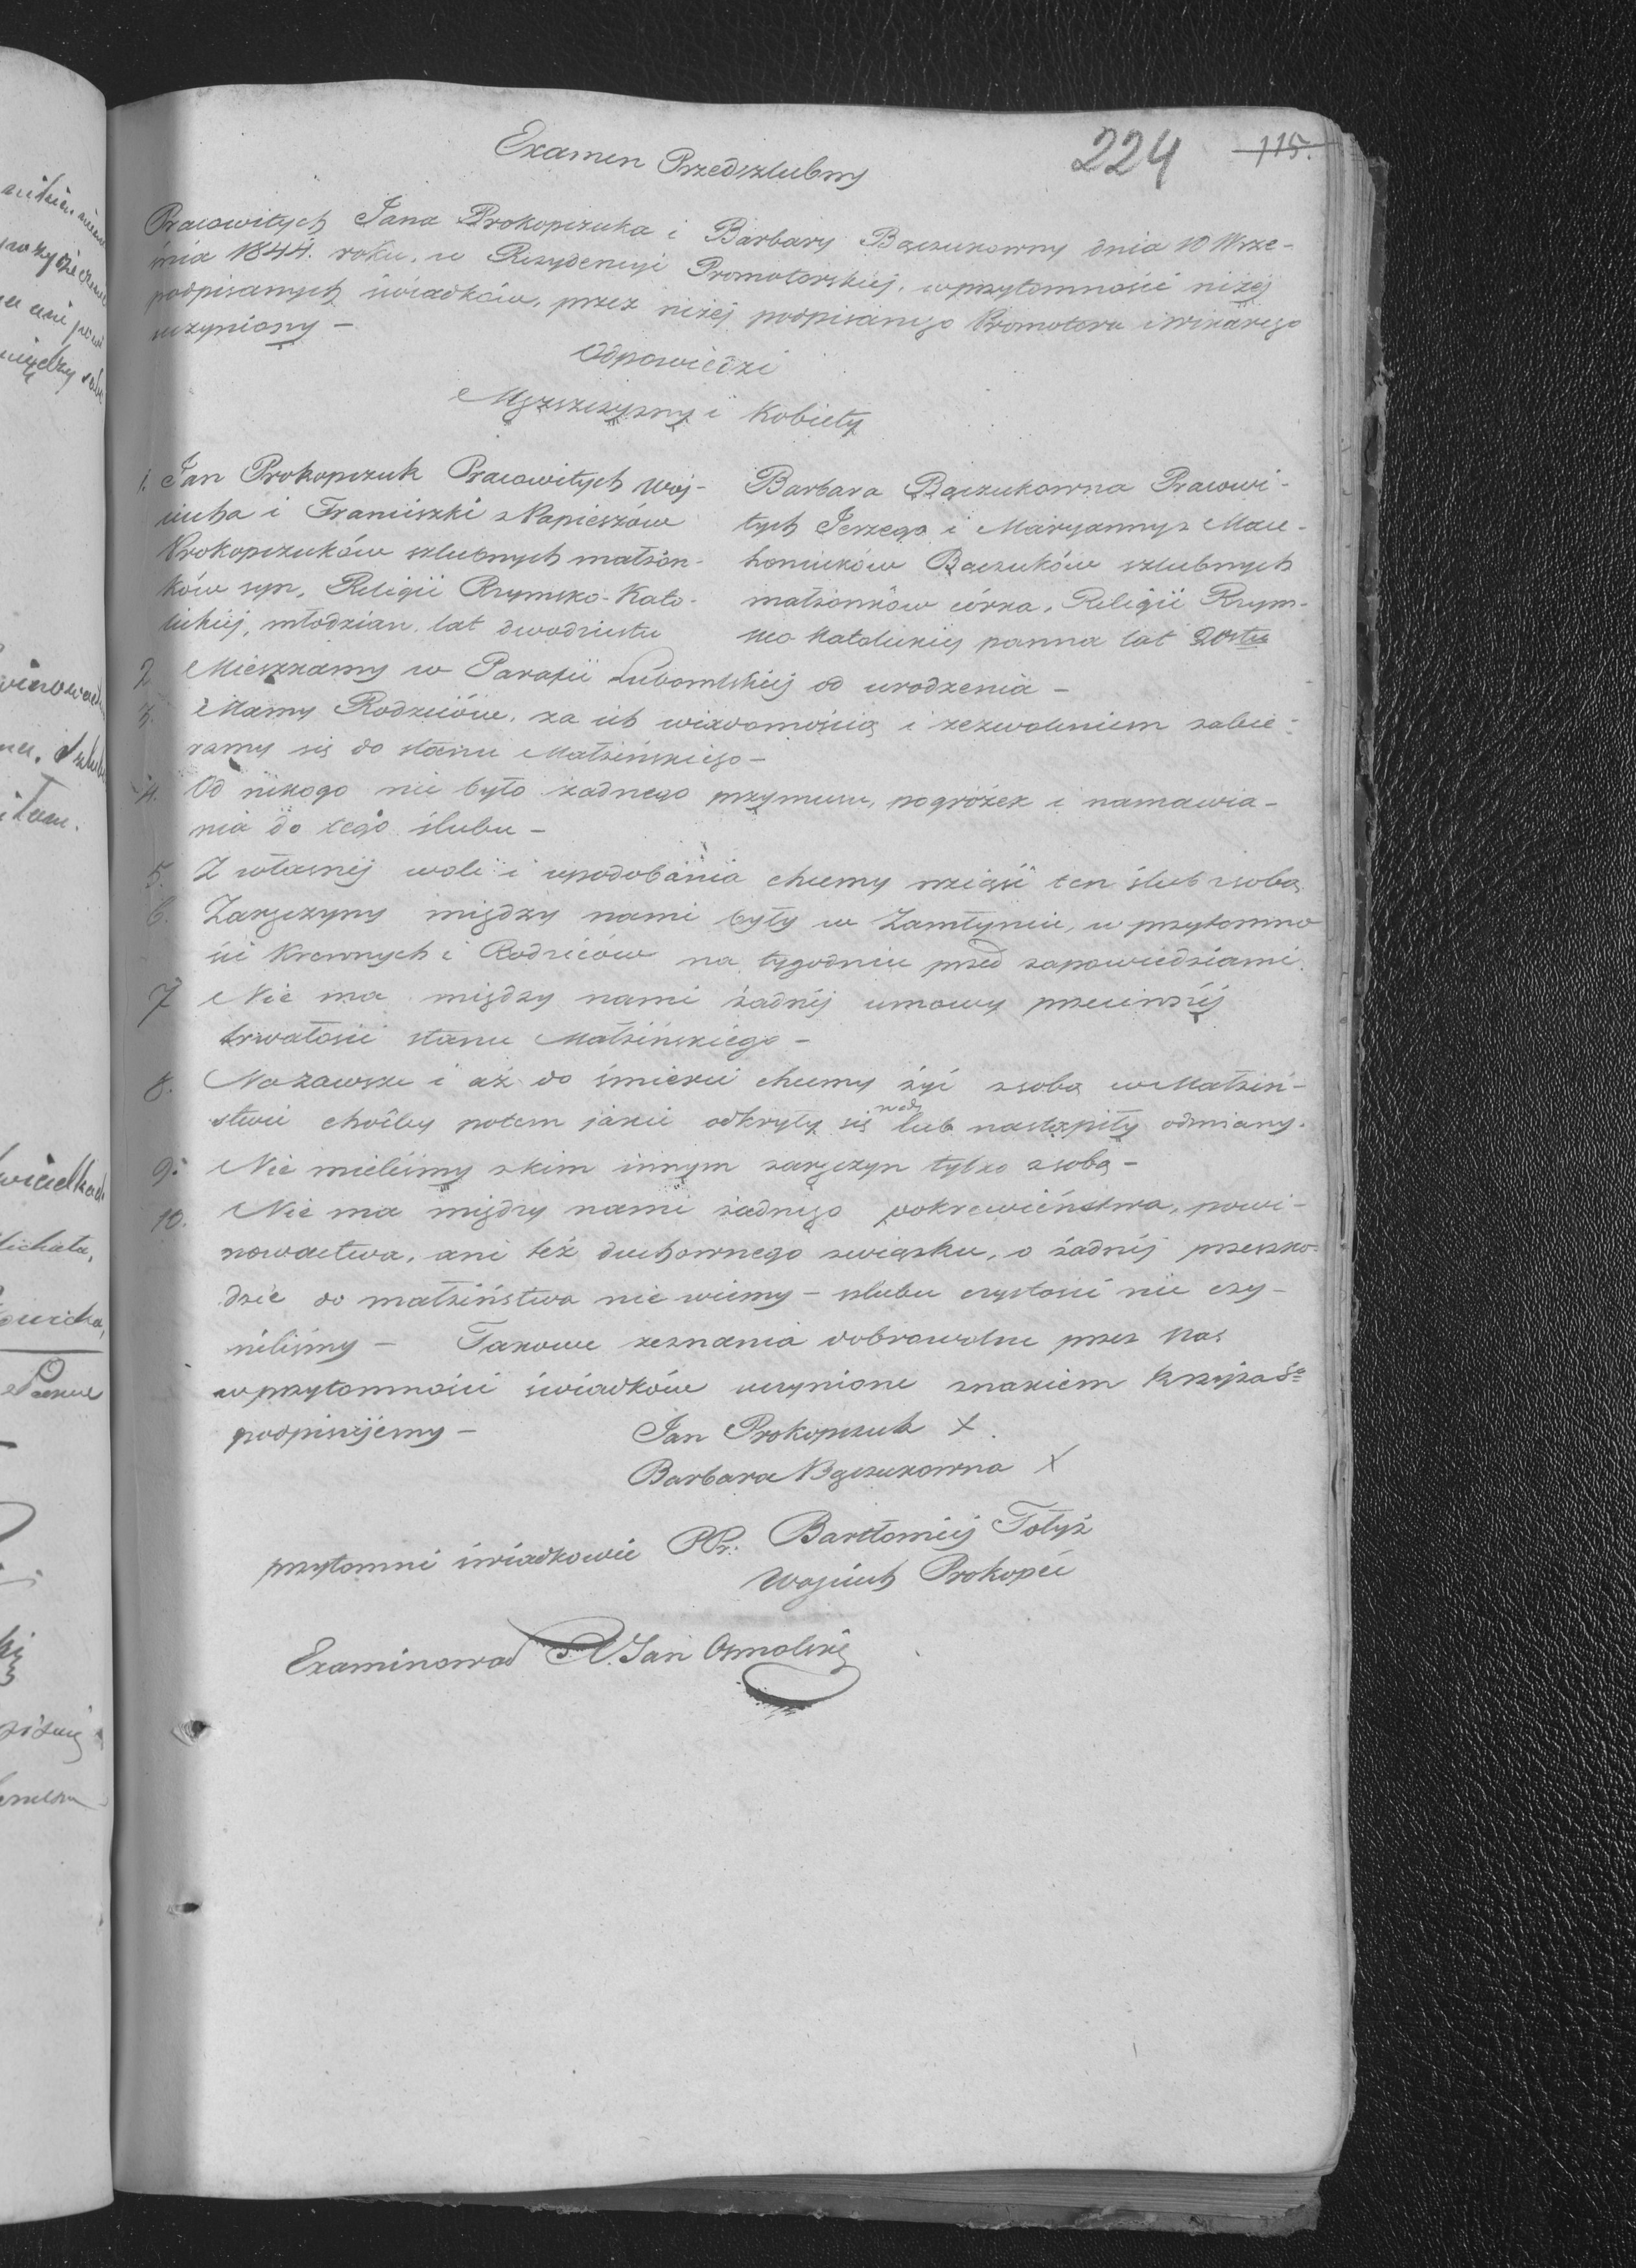 Examen Przedszlubny
224 115.
Pracowitych Jana Prokopczuka i Barbary Bączukowny dnia 10 Wrze-
śnia 1844. roku, w Rezydencyi Promotorskiej, w przytomności niżej
podpisanych świadków, przez niżej podpisanego Promotora i wikarego
uczyniony –
Odpowiedzi
Męzszczyzny i Kobiety
1. Jan Prokopczuk Pracowitych Woj-
ciecha i Franciszki z Napieszów
Prokopczuków szlubnych małżon-
ków syn, Religii Rzymsko-Kato-
lickiej, młodzian, lat dwadziestu
Barbara Bączukowna Pracowi-
tych Jerzego i Maryanny z
Bączuków szlubnych
małżonków córka, Religii Rzym-
sko Katolickiej panna lat 20stu
2. Mieszkamy w Parafii Lubomlskiej od urodzenia –
3. Mamy Rodziców, za ich wiadomością i zezwoleniem zabie-
ramy się do stanu Małżeńskiego –
4. Od nikogo nie było żadnego przymusu, pogróżek i namawia-
nia do tego ślubu –
5. Z własnej woli i upodobania chcemy wziąść ten ślub z sobą
6. Zaręczyny między nami były w Zamłyniu, w przytomno
ści Krewnych i Rodziców na tygodniu przed zapowiedziami.
7 Nie ma między nami żadnej umowy przeciwnej
trwałości stanu Małżeńskiego –
8. Na zawsze i aż do śmierci chcemy żyć z sobą w Małżeń-
stwie choćby potem jakie odkryły się wady lub nastąpiły odmiany.
9. Nie mieliśmy z kim innym zaręczyn tylko z sobą –
10. Nie ma między nami żadnego pokrewieństwa, powi-
nowactwa, ani też duchownego związku, o żadnej przeszko-
dzie do małżeństwa nie wiemy – szlubu czystości nie czy-
niliśmy – Takowe zeznania dobrowolne przez Nas
w przytomności świadków uczynione znakiem Krzyża Sgo
podpisujemy –
Jan Prokopczuk X
Barbara Bączukowna X
przytomni świadkowie PPr. Bartłomiej Tołyż
Wojciech Prokopci
Examinował Jan Osmolski